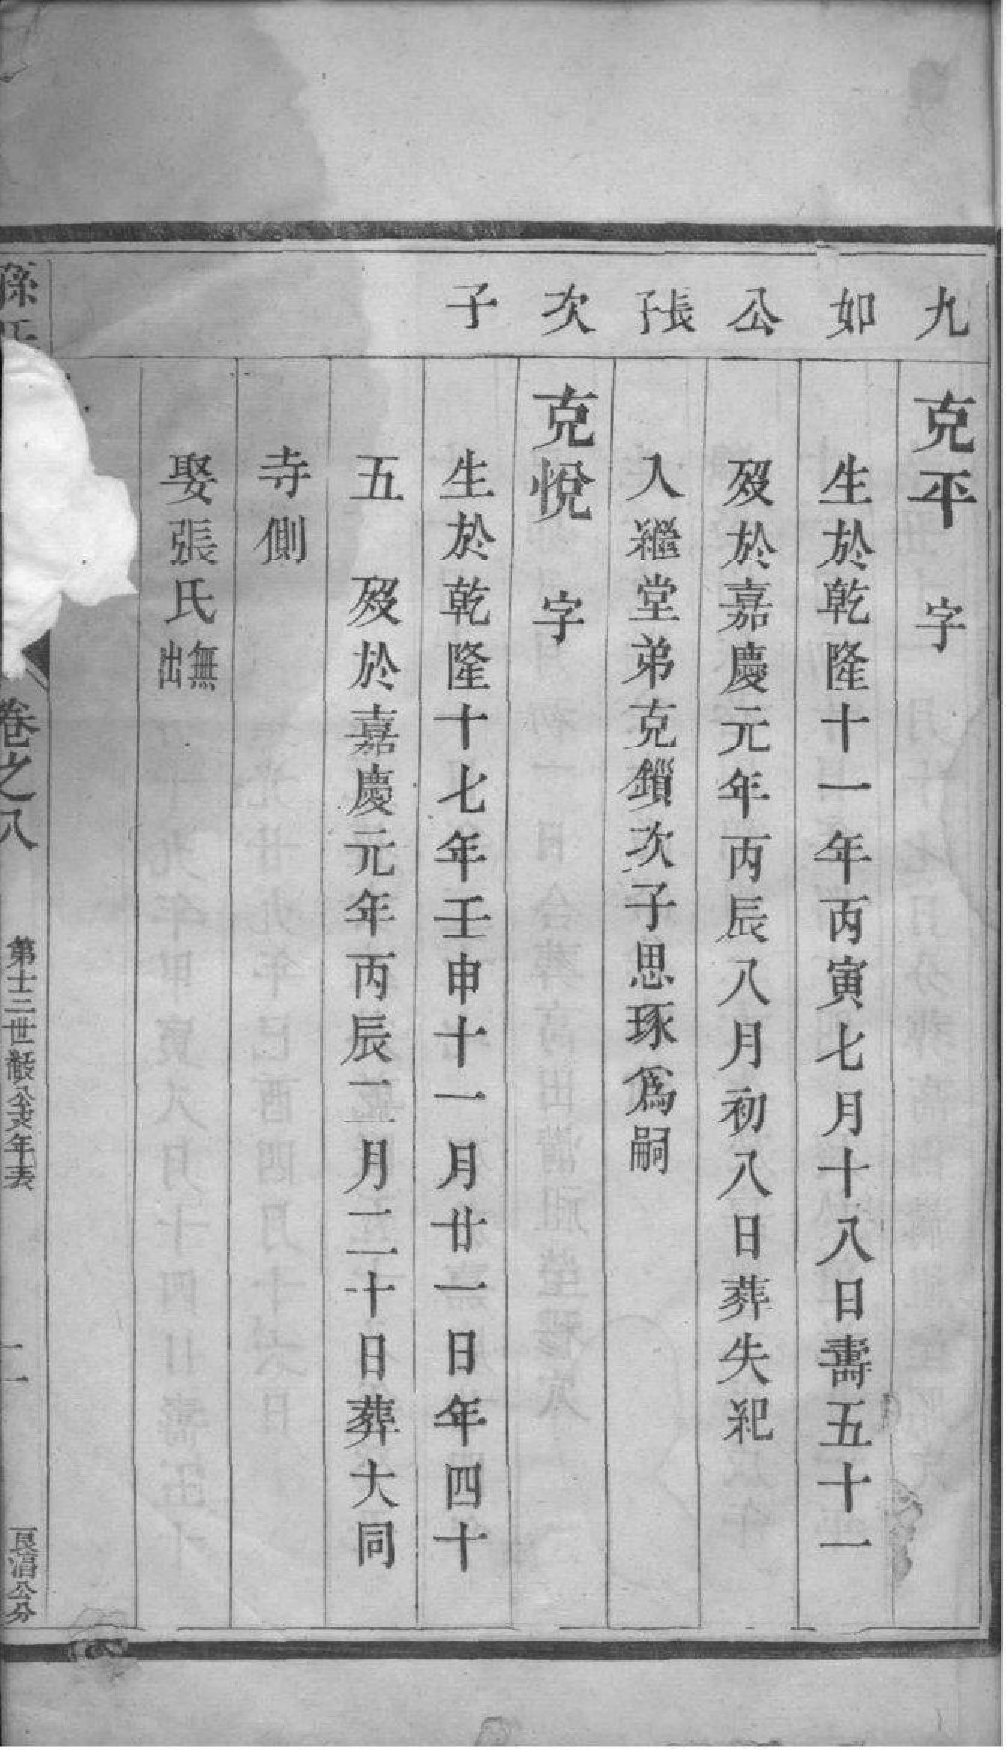 九如公張子次子
克平 字
生於乾隆十一年丙寅七月十八日壽五十一
歿於嘉慶元年丙辰八月初八日葬失祀
入繼堂弟克鎖次子思琢爲嗣
克悅 字
生於乾隆十七年壬申十一月廿一日年四十
五 歿於嘉慶元年丙辰二月二十日葬大同
寺側
娶張氏無出
孫氏
卷之八
第十二世 公 年表
二一
良 公分